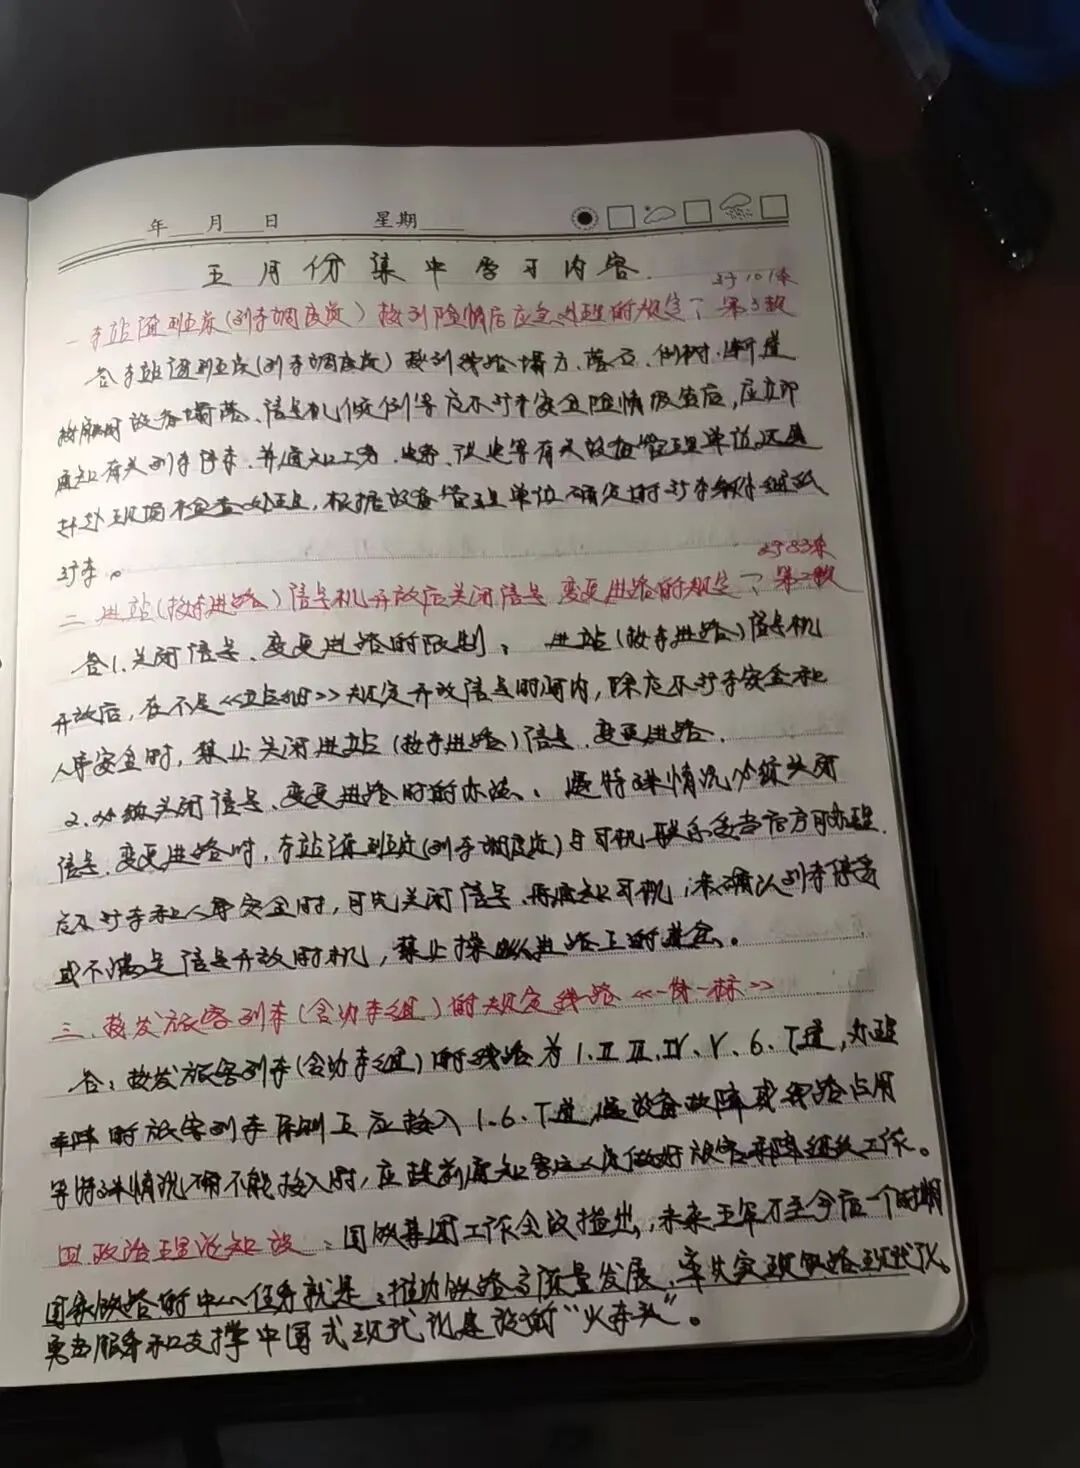 年 月 日 星期
五月份集中学习内容
对于101条
一、车站值班员(列车调度员)接到险情后应急处理的规定？第3款
答车站值班员(列车调度员)接到线路塌方、落石、倒树、隧道
设备塌落、信号机倾倒等危及行车安全险情报告后,应立即
通知有关列车停车,并通知工务、电务、供电等有关设备管理单位迅速
赶赴现场检查处理,根据设备管理单位确定的行车条件组织
行车。
对于83条
二、进站(接车进路)信号机开放后关闭信号、变更进路的规定？第二款
答1.关闭信号、变更进路的限制: 进站(接车进路)信号机
开放后,在不是《站细》规定开放信号时间内,除危及行车安全和
人身安全时,禁止关闭进站(接车进路)信号、变更进路.
2.必须关闭信号、变更进路时的办法: 遇特殊情况必须关闭
信号、变更进路时,车站值班员(列车调度员)与司机联系妥当后方可办理.
危及行车和人身安全时,可先关闭信号,再通知司机;未确认列车停妥
或不满足信号开放时机,禁止操纵进路上的道岔。
三、接发旅客列车(含动车组)的规定线路《一体一标》
答:接发旅客列车(含动车组)的线路为1.Ⅱ Ⅲ.Ⅳ.Ⅴ.6.7道,办理
乘降的旅客列车原则上应接入1.6.7道,遇设备故障或线路占用
等特殊情况确不能接入时,应提前通知客运人员做好旅客乘降组织工作。
四 政治理论知识: 国铁集团工作会议指出,未来五年乃至今后一个时期
国家铁路的中心任务就是:推动铁路高质量发展,率先实现铁路现代化。
勇当服务和支撑中国式现代化建设的“火车头”。